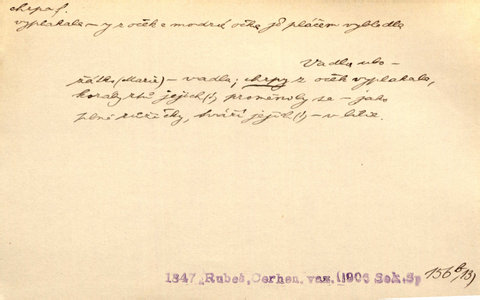 chrpa f.
vyplakala – y z oček = modrá očka jí pláčem vybledla
Vadla ubo-
žátko (Marie) – vadla; chrpy z oček vyplakala,
koraly rtů jejích (!) proměnily se – jako
plné růžičky, tváří jejích (!) – v bílé.
1847 Rubeš, Cerhen. vaz. (1906 Seb. Sp
156 13)